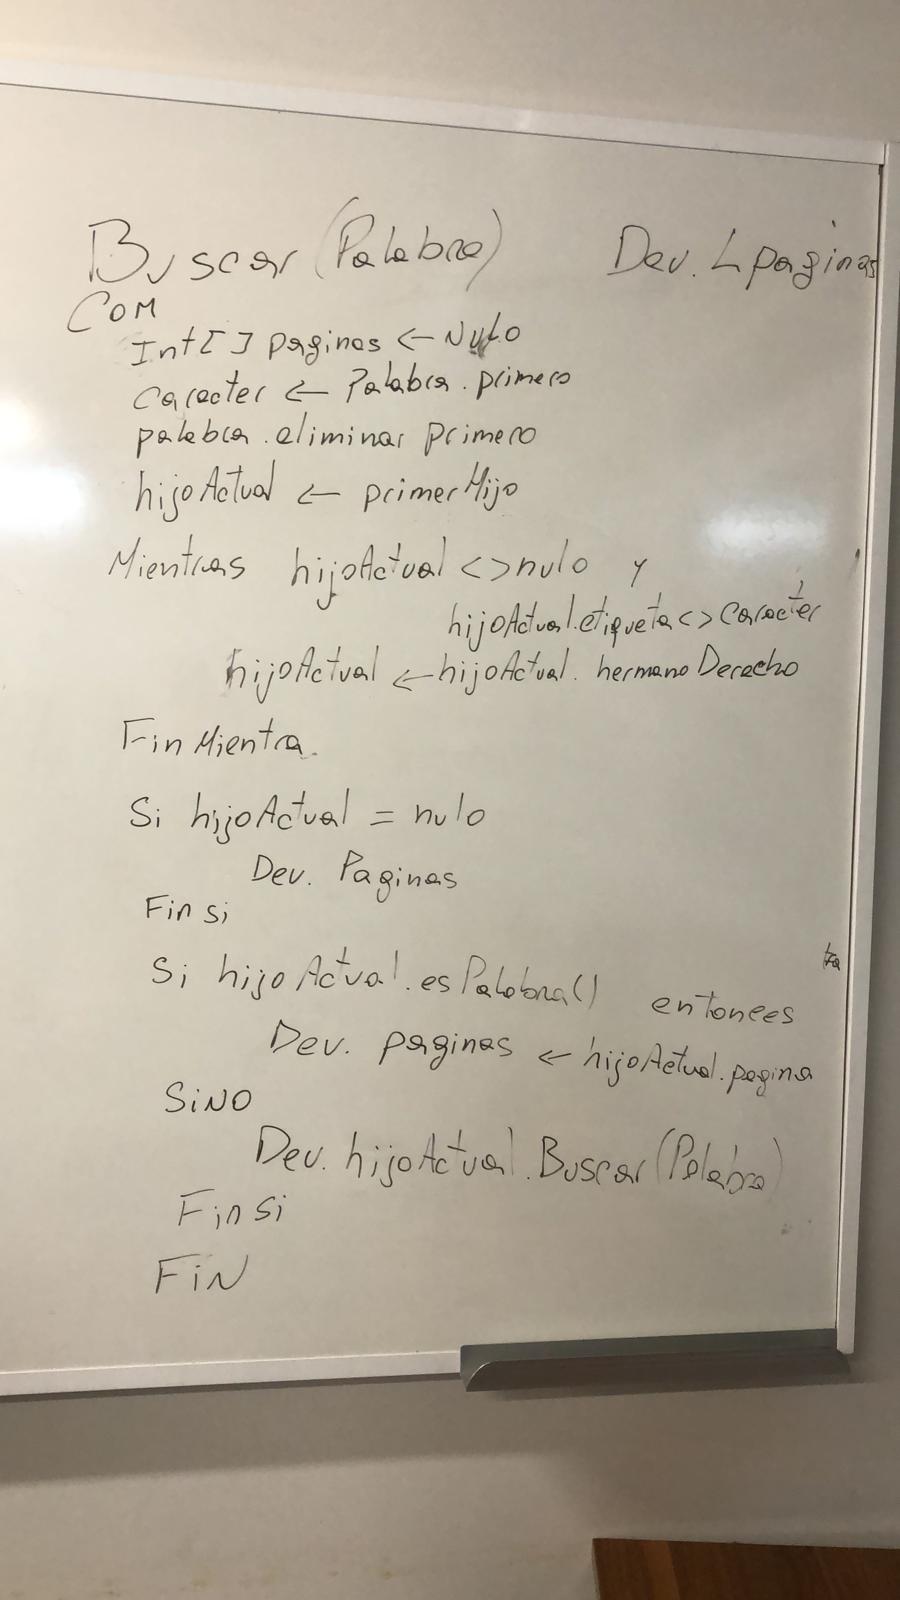 Buscar (Palabra) Dev. L paginas
COM
Int[] paginas ← Nulo
Caracter ← Palabra.primero
palabra.eliminar primero
hijoActual ← primerHijo
Mientras hijoActual <> nulo y
hijoActual.etiqueta <> Caracter
hijoActual ← hijoActual.hermanoDerecho
FinMientra.
Si hijoActual = nulo
Dev. Paginas
Fin si
Si hijoActual.esPalabra() entonces
Dev. paginas ← hijoActual.pagina
SiNO
Dev. hijoActual.Buscar(Palabra)
Fin si
FiN